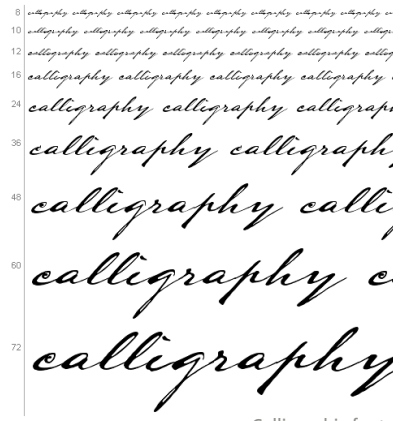 8 calligraphy calligraphy calligraphy calligraphy calligraphy calligraphy calligraphy calligraphy
10 calligraphy calligraphy calligraphy calligraphy calligraphy calligraphy
12 calligraphy calligraphy calligraphy calligraphy calligraphy callig
16 calligraphy calligraphy calligraphy calligraphy
24 calligraphy calligraphy calligraph
36 calligraphy calligraph
48 calligraphy calli
60 calligraphy c
72 calligraphy